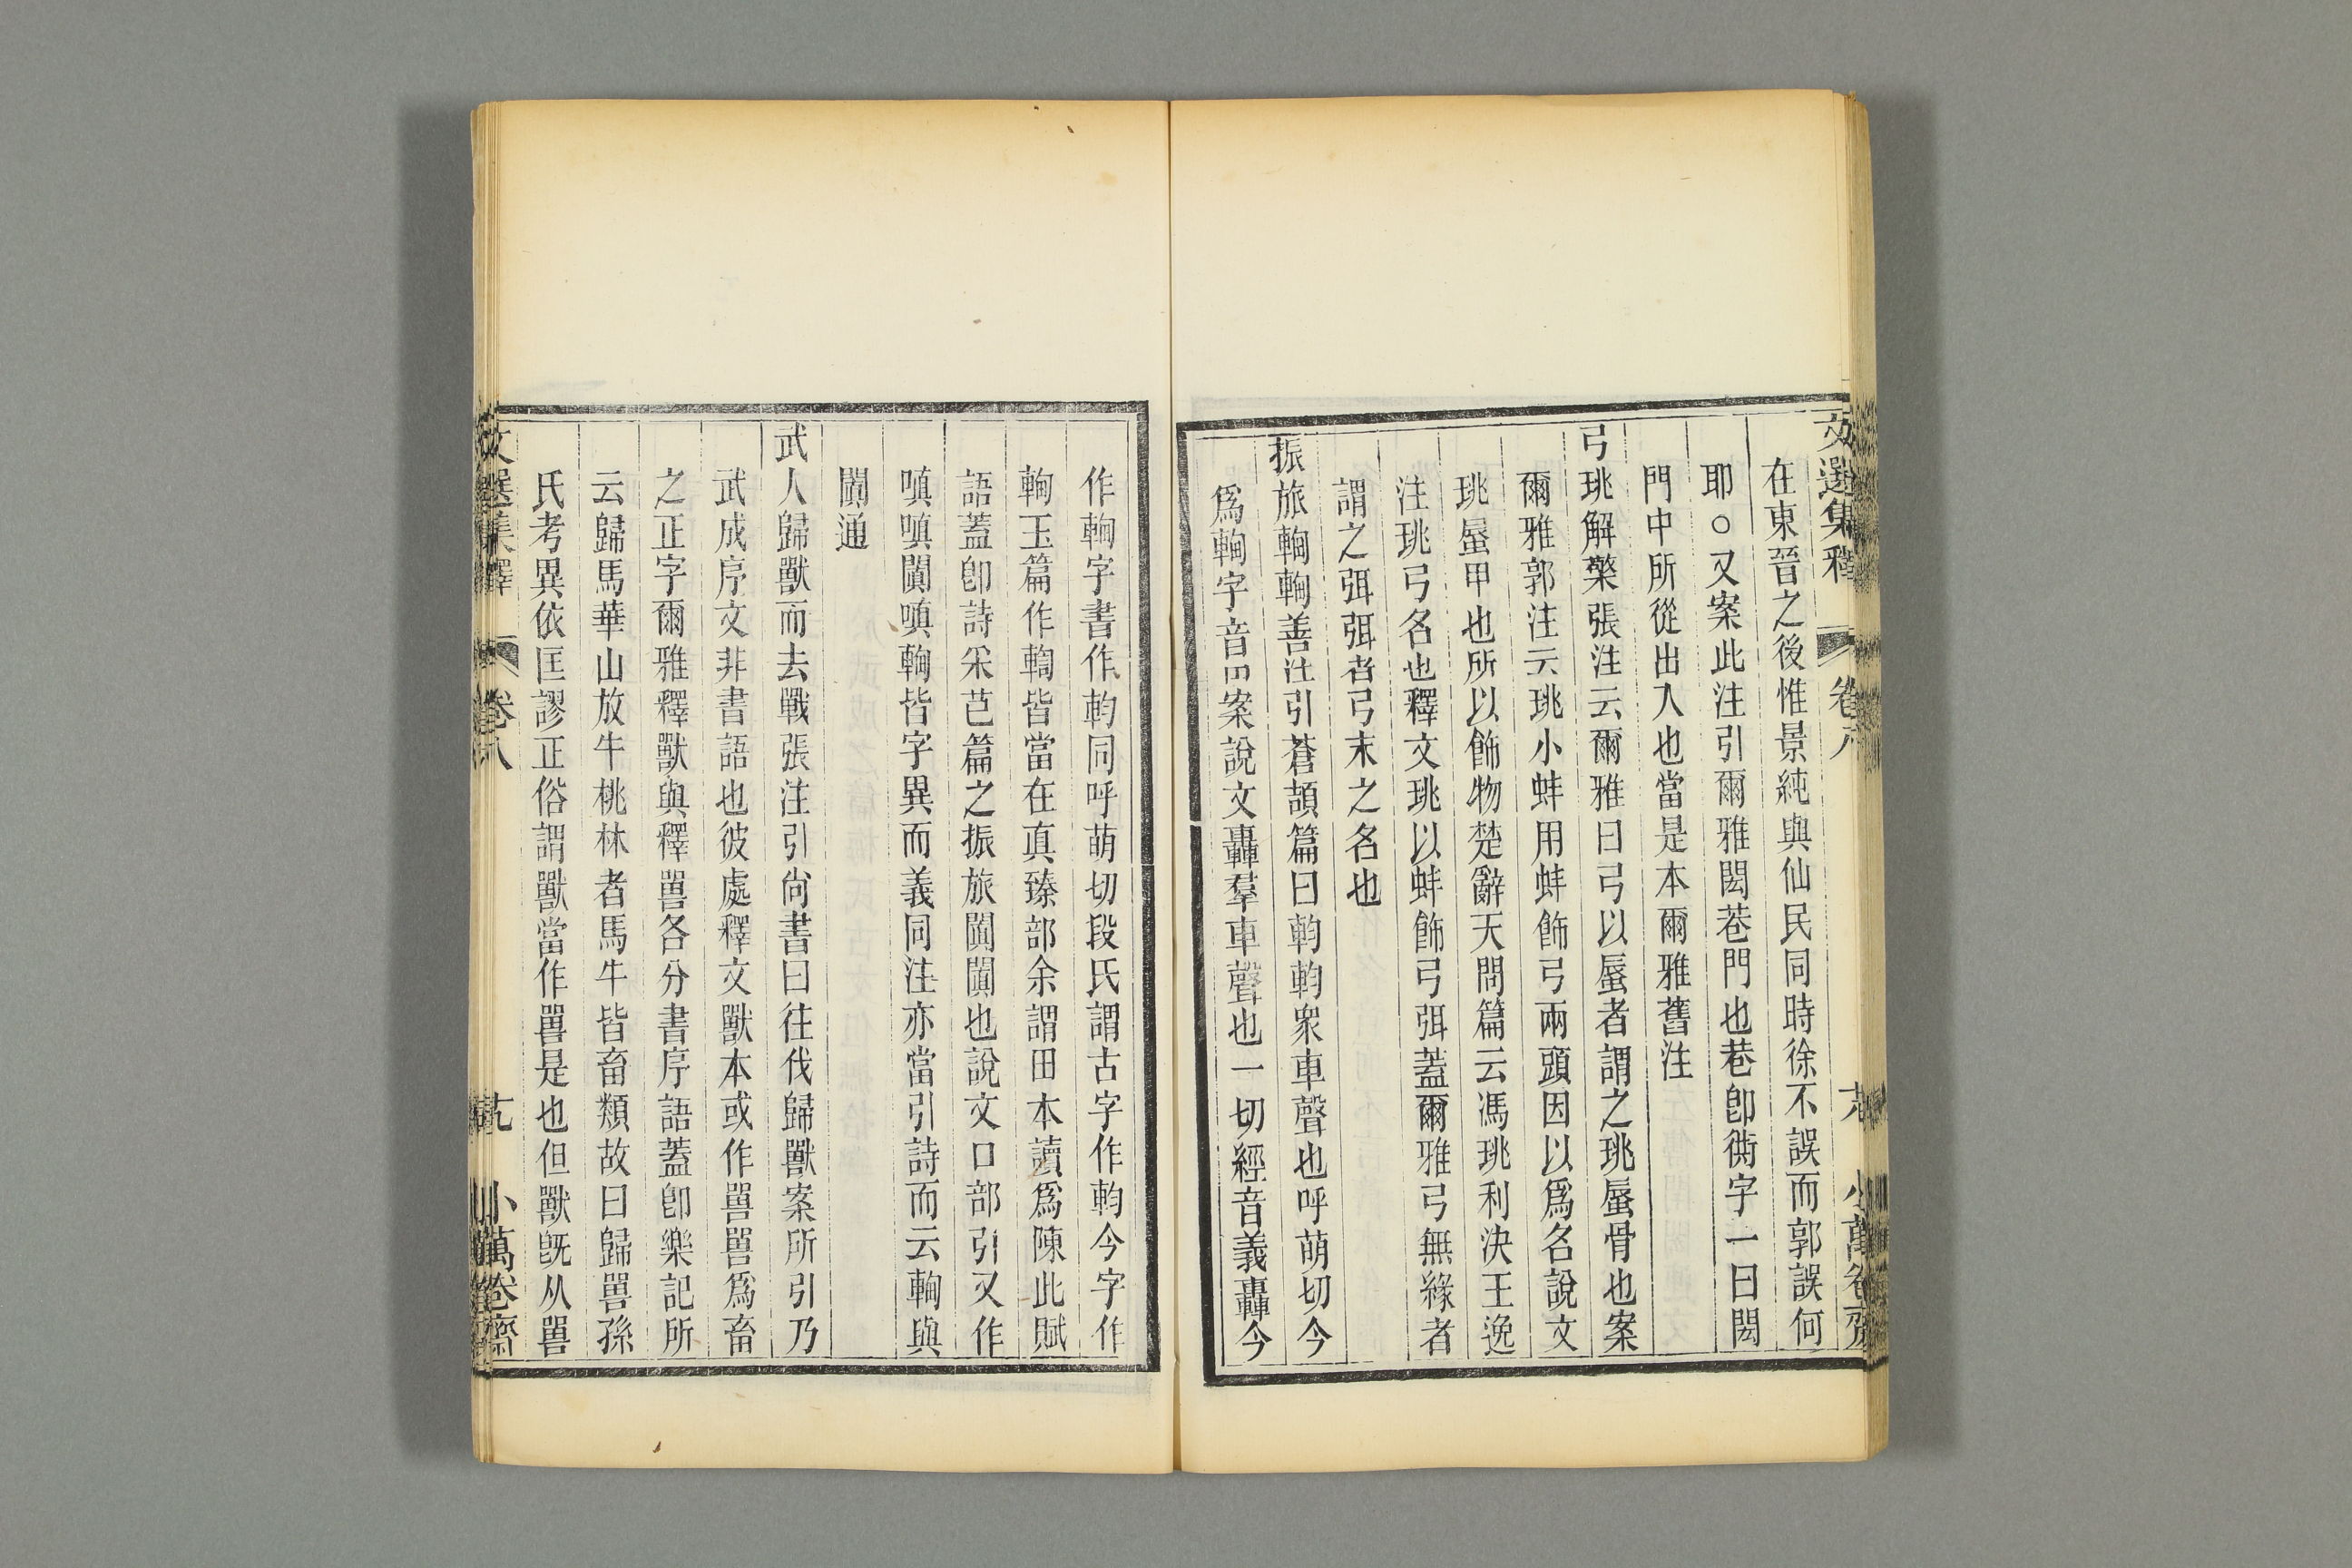 文選集釋 卷八 大 小萬卷齋
在東晉之後惟景純與仙民同時徐不誤而郭誤何
耶○又案此注引爾雅閎巷門也巷卽衖字一曰閎
門中所從出入也當是本爾雅舊注
弓珧解檗張注云爾雅曰弓以蜃者謂之珧蜃骨也案
爾雅郭注云珧小蚌用蚌飾弓兩頭因以爲名說文
珧蜃甲也所以飾物楚辭天問篇云馮珧利決王逸
注珧弓名也釋文珧以蚌飾弓弭蓋爾雅弓無緣者
謂之弭弭者弓末之名也
振旅輷輷善注引蒼頡篇曰軥軥衆車聲也呼萌切今
爲輷字音田案說文轟羣車聲也一切經音義轟今
作輷字書作軥同呼萌切段氏謂古字作軥今字作
輷玉篇作輷皆當在真臻部余謂田本讀爲陳此賦
語蓋卽詩采芑篇之振旅闐闐也說文口部引又作
嗔嗔闐嗔輷皆字異而義同注亦當引詩而云輷與
闐通
武人歸獸而去戰張注引尙書曰往伐歸獸案所引乃
武成序文非書語也彼處釋文獸本或作嘼嘼爲畜
之正字爾雅釋獸與釋嘼各分書序語蓋卽樂記所
云歸馬華山放牛桃林者馬牛皆畜類故曰歸嘼孫
氏考異依匡謬正俗謂獸當作嘼是也但獸旣从嘼
文選集釋 卷八 小萬卷齋